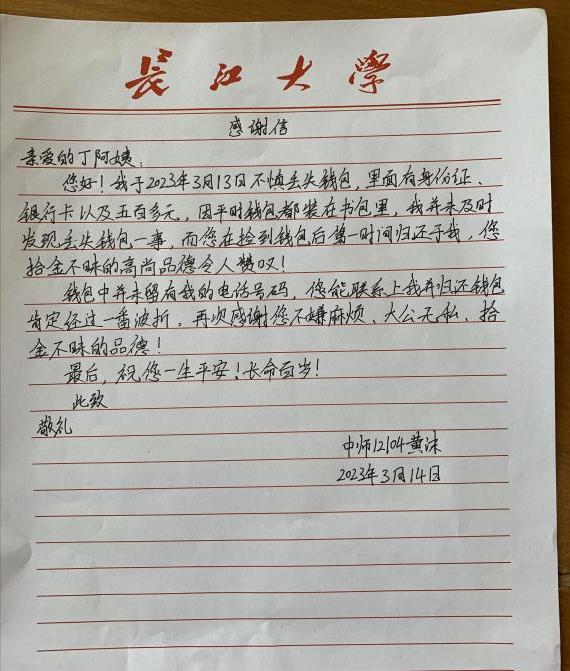 長江大學
感谢信
亲爱的丁阿姨：
您好！我于2023年3月13日不慎丢失钱包，里面有身份证、
银行卡以及五百多元，因平时钱包都装在书包里，我并未及时
发现丢失钱包一事，而您在捡到钱包后第一时间归还于我，您
拾金不昧的高尚品德令人赞叹！
钱包中并未留有我的电话号码，您能联系上我并归还钱包
肯定经过一番波折，再次感谢您不嫌麻烦、大公无私、拾
金不昧的品德！
最后，祝您一生平安！长命百岁！
此致
敬礼
中师12104黄沫
2023年3月14日